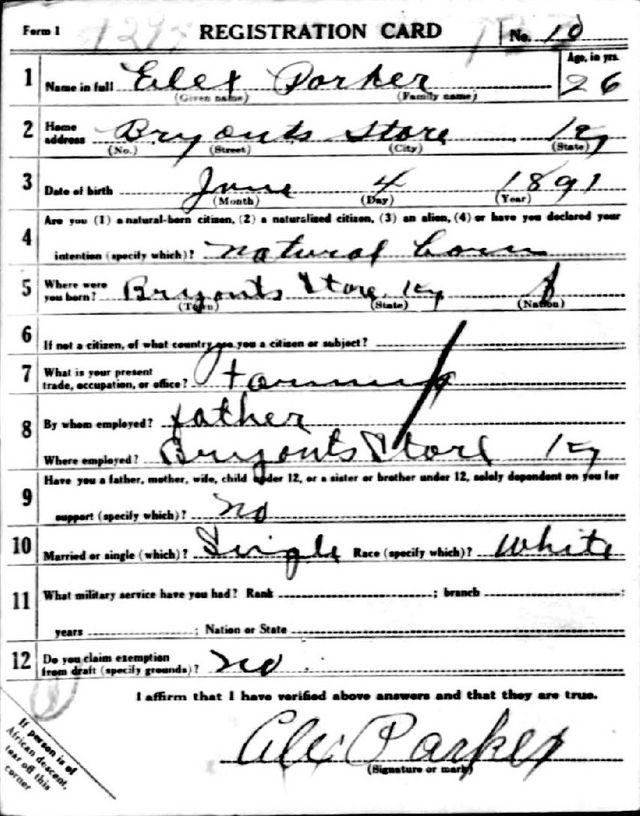 Form 1 REGISTRATION CARD No. 10
1 Name in full Elex Parker Age, in yrs. 26
(Given name) (Family name)
2 Home address Bryonts Store Ky
(No.) (Street) (City) (State)
3 Date of birth June 4 1891
(Month) (Day) (Year)
Are you (1) a natural-born citizen, (2) a naturalized citizen, (3) an alien, (4) or have you declared your
4 intention (specify which)? natural born
5 Where were you born? Bryonts Store Ky
(Town) (State) (Nation)
6 If not a citizen, of what country are you a citizen or subject?
7 What is your present
trade, occupation, or office? farming
8 By whom employed? father
Where employed? Bryonts Store Ky
Have you a father, mother, wife, child under 12, or a sister or brother under 12, solely dependent on you for
9 support (specify which)? no
10 Married or single (which)? Single Race (specify which)? White
11 What military service have you had? Rank ; branch ;
years ; Nation or State
12 Do you claim exemption
from draft (specify grounds)? no
I affirm that I have verified above answers and that they are true.
Alex Parker
(Signature or mark)
If person is of
African descent,
tear off this
corner